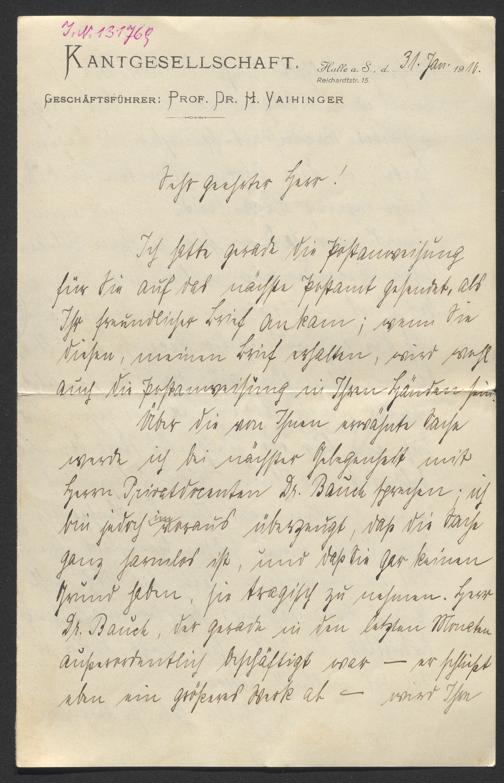 J.N. 131769
KANTGESELLSCHAFT.
Halle a. S., d. 31. Jan. 1910.
Reichardtstr. 15.
GESCHÄFTSFÜHRER: PROF. DR. H. VAIHINGER
Sehr geehrter Herr!
Ich hatte gerade die Postanweisung
für Sie auf das nächste Postamt gesendet, als
Ihr freundlicher Brief ankam; wenn Sie
diesen, meinen Brief erhalten, wird wohl
auch die Postanweisung in Ihren Händen sein.
Über die von Ihnen erwähnte Sache
werde ich bei nächster Gelegenheit mit
Herrn Privatdocenten Dr. Bauch sprechen; ich
bin jedoch im voraus überzeugt, daß die Sache
ganz harmlos ist, und daß Sie gar keinen
Grund haben, sie tragisch zu nehmen. Herr
Dr. Bauch, der gerade in den letzten Monaten
außerordentlich beschäftigt war — er schließt
eben ein größeres Werk ab — wird Ihre